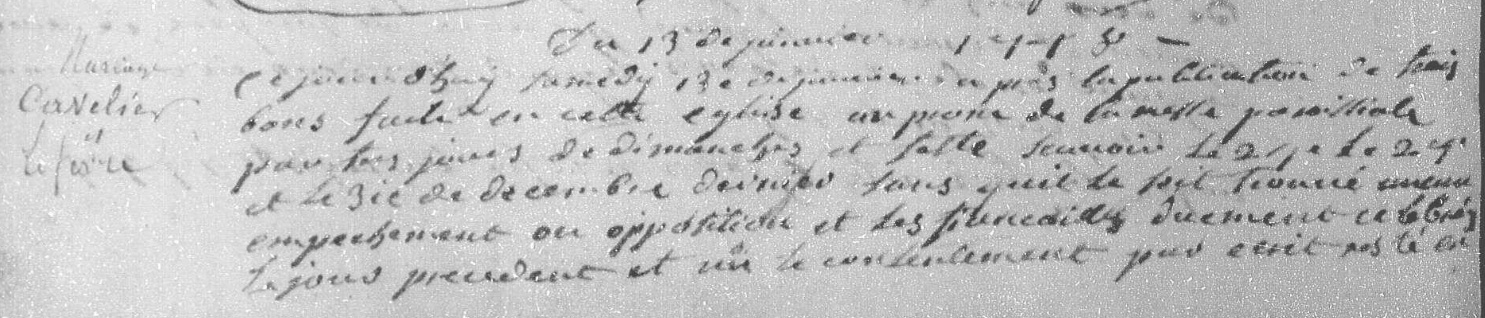 Du 13 de janvier
Mariage
Cavelier
et
lefevre
Ce jourdhuy samedy 13e de janvier apres la publication de trois
bans faite en cette eglise au prone de la messe paroissiale
par trois jours de dimanches et feste scavoir le 24e le 25e
et le 31e de decembre dernier sans quil se soit trouvé aucun
empechement ou opposition et les fiancailles duement celebrées
le jour precedent et vu le consentement par ecrit resté en